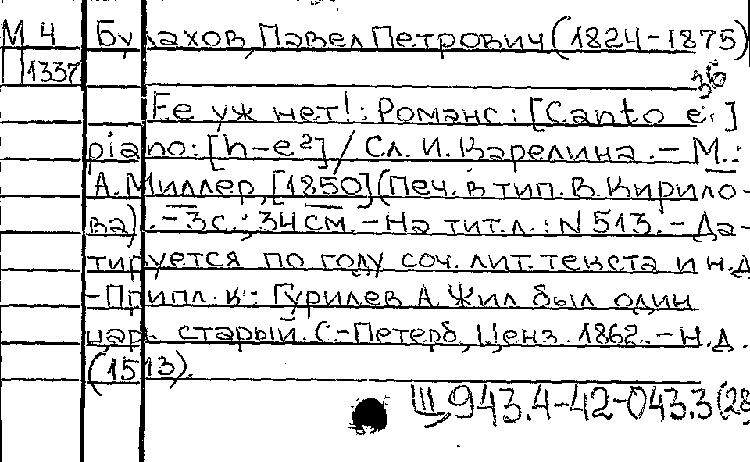 М 4 Булахов, Павел Петрович (1824-1875)
П 1337
36
Ее уж нет!: Романс: [Canto e]
piano: [h-e²] / Сл. И. Карелина. - М.:
А. Миллер, [1850] (Печ. в тип. В. Кирило-
ва). - 3с.; 34 см. - На тит.л.: N 513. - Да-
тируется по году соч. лит. текста и н.д.
- Припл. к: Гурилев А. Жил был один
царь старый. С.-Петерб., Ценз. 1862. - Н.д.
(1513).
Ш 943.4-42-043.3(28